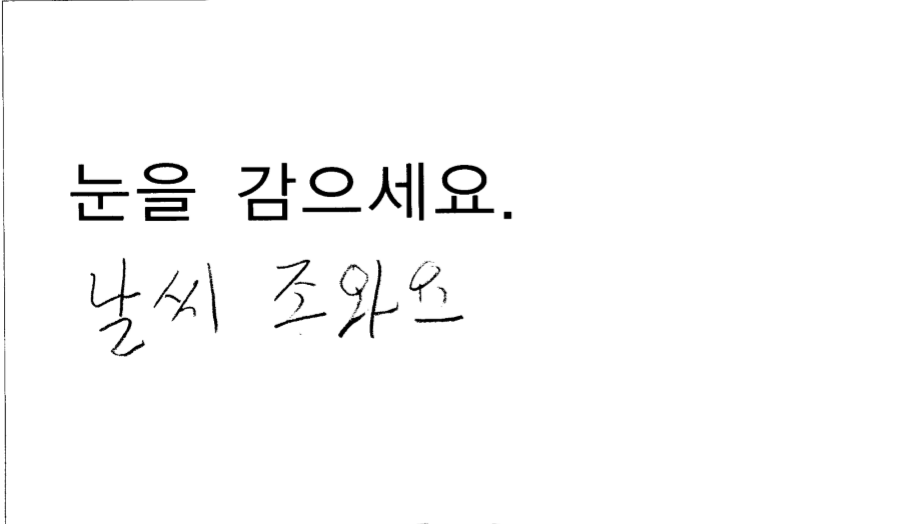 눈을 감으세요.
날씨 조와요